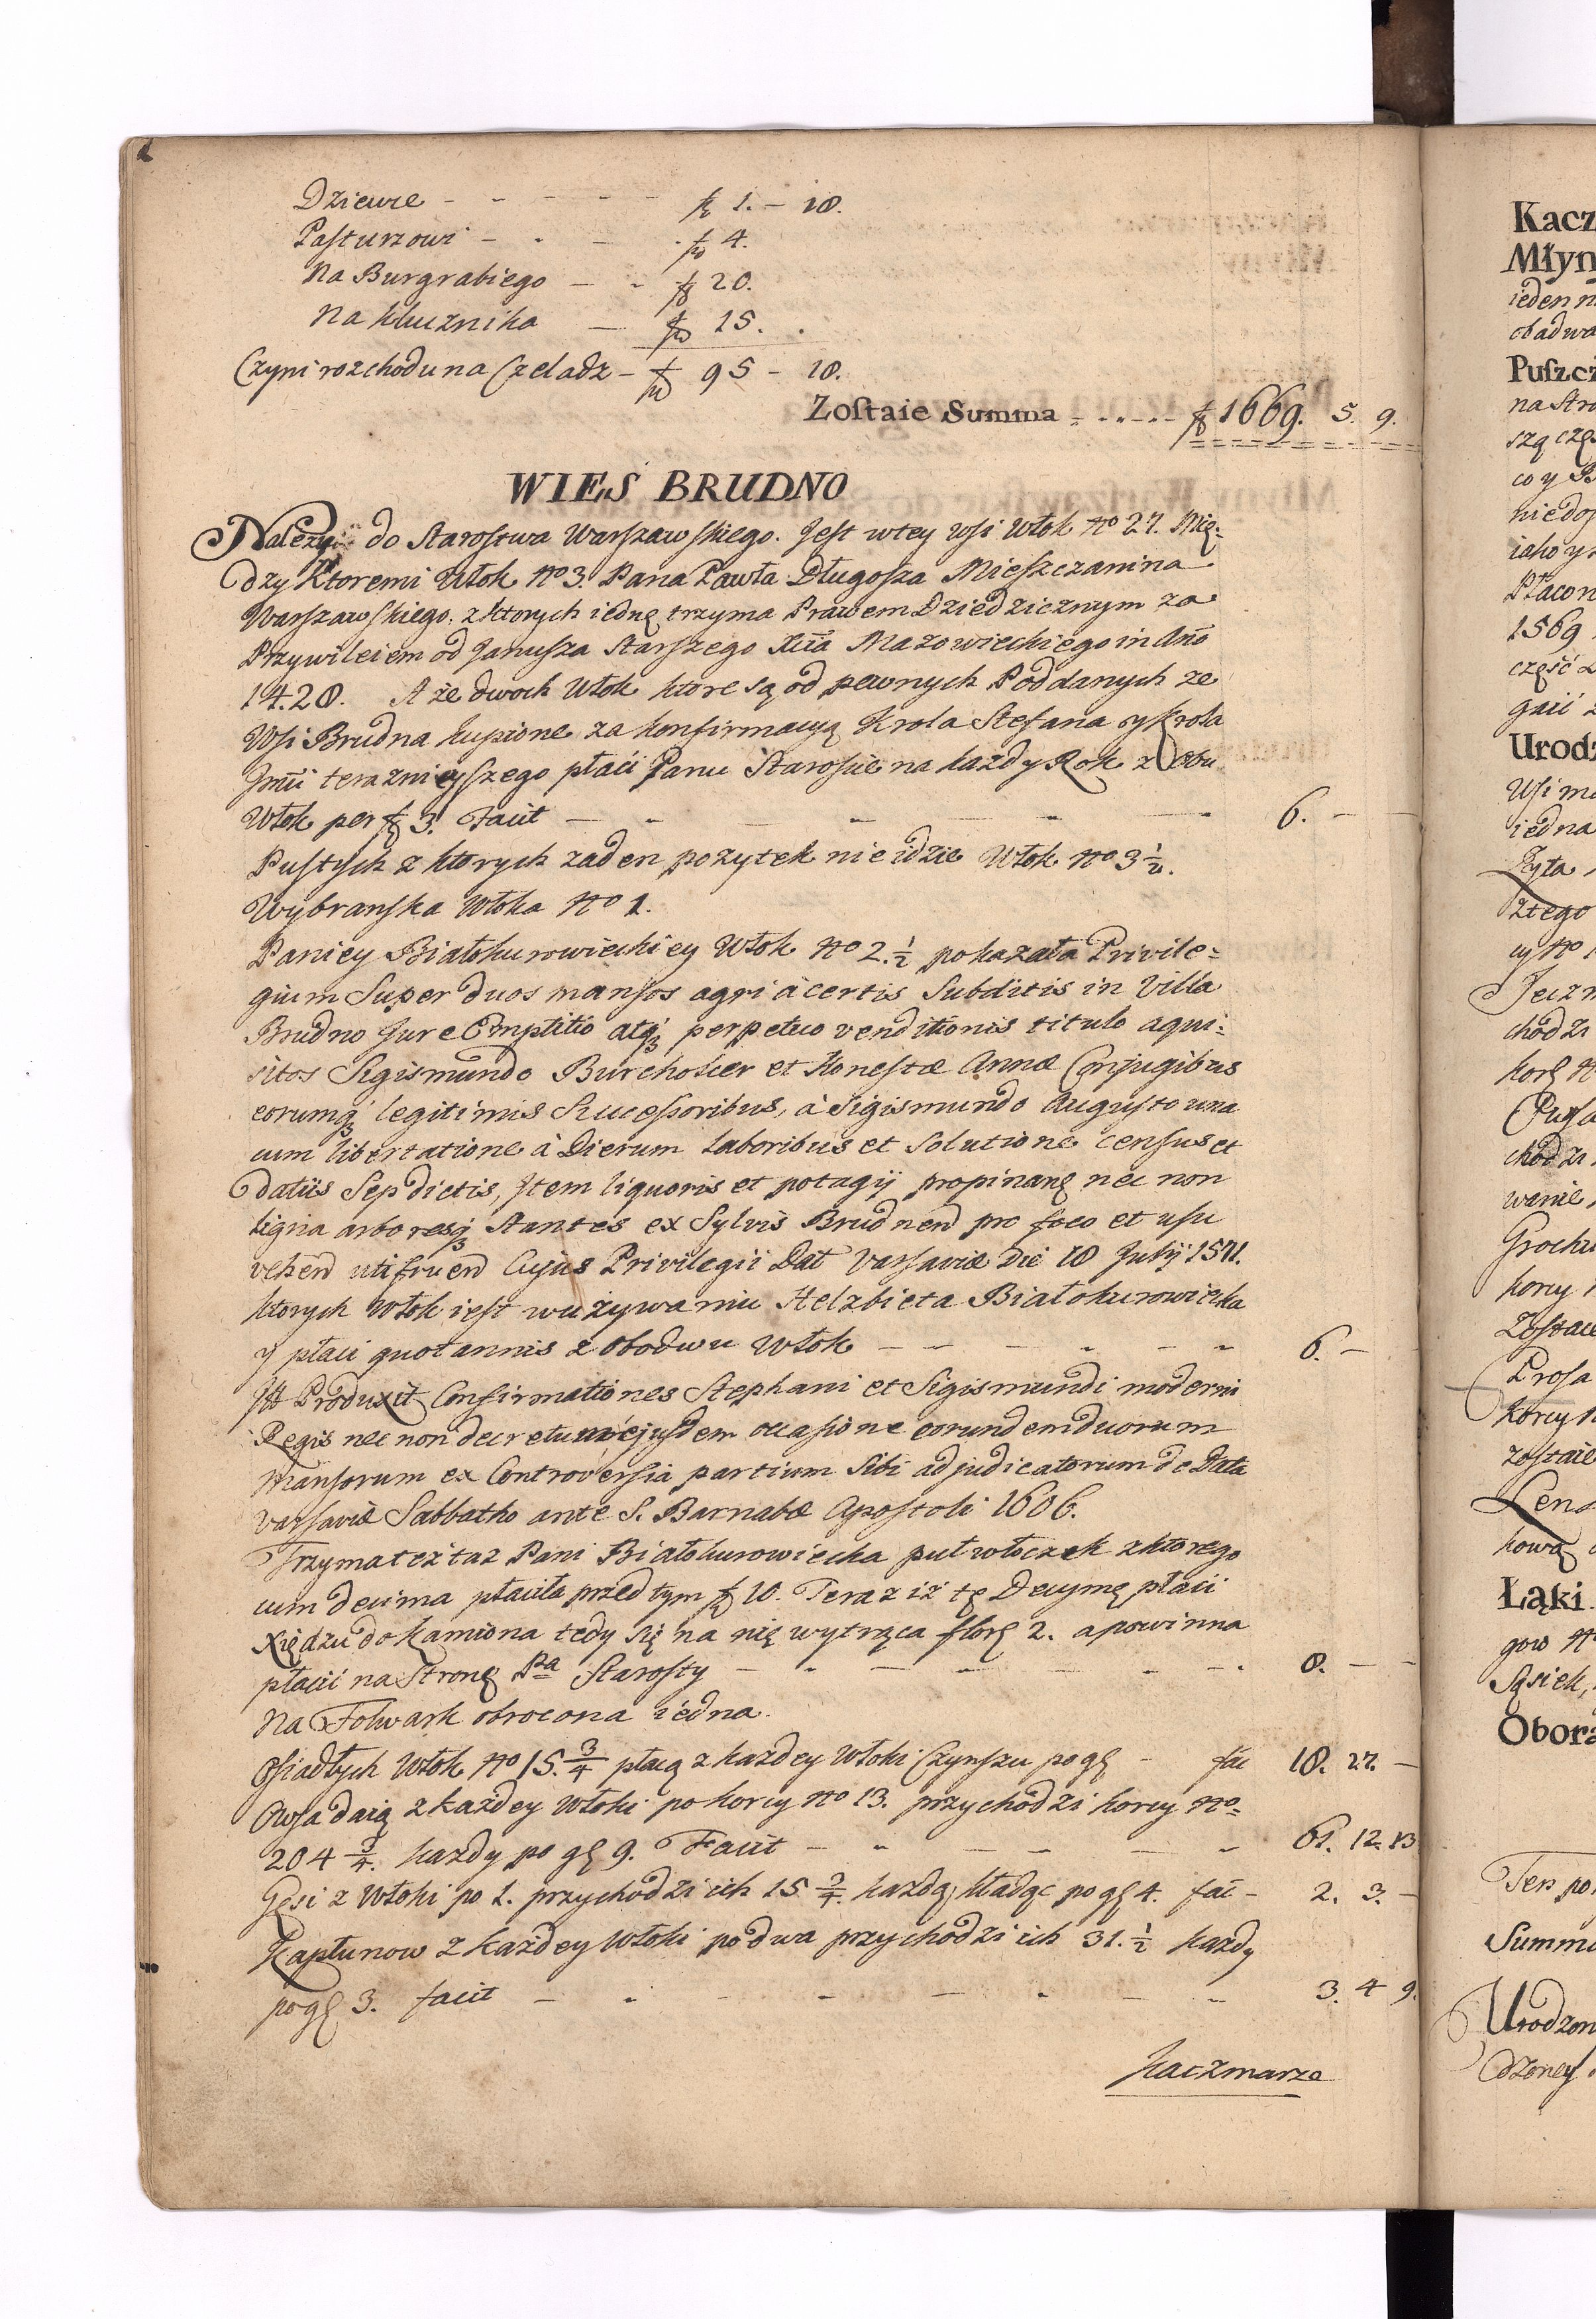 Dziewce - - - - - fl 1. - 18.
Pasturzowi - - - fl 4.
Na Burgrabiego - - fl 20.
Na Klucznika - fl 15.
Czyni rozchodu na Czeladz - fl 95 - 18.
Zostaie Summa - - - - - fl 1669. 5. 9.
WIES BRUDNO
Należy do Starostwa Warszawskiego. Jest w tey wsi Włok No 27. Mię=
dzy Ktoremi Włok No 3. Pana Pawła Długosza Mieszczanina
Warszawskiego, z ktorych iednę trzyma Prawem Dziedzicznym za
Przywileiem od Janusza Starszego Xcia Mazowieckiego in Ano
1428. A że dwoch Włok ktore są od pewnych Poddanych ze
Wsi Brudna kupione za konfirmacyą Krola Stefana y Krola
Jmci teraznieyszego płaci Panu Staroście na każdy Rok z Obu
Włok per fl 3. Facit - - - - - - 6. - -
Pustych z ktorych żaden pożytek nie idzie Włok No 3 1/2.
Wybranska Włoka No 1.
Paniey Białokurowieckiey Włok No 2. 1/2 pokazała Privile=
gium Super duos mansos agri à certis Subditis in Villa
Brudno Jure Emptitio atq3 perpetuo venditionis titulo aqui=
sitos Sigismundo Burcholcer et Honestæ Annæ Conjugibus
eorumq3 legitimis Successoribus, à Sigismundo Augusto una
cum libertatione à Dierum laboribus et Solutione census et
datiis Sepdictis, Item liquoris et potagij propinanę nec non
ligna arboresq3 Stantes ex Sylvis Brudnen pro foco et usu
vehen utifruen Cujus Privilegii Dat Varsaviæ Die 18 Julij 1571.
ktorych Włok iest w używaniu Helzbieta Białokurowiecka
y płaci quotannis z obodwu Włok - - - - - - 6. -
Itt Produxit Confirmationes Stephani et Sigismundi moderni
Regis nec non decretum ejusdem occasione eorundem duorum
mansorum ex Controversia partium Sibi adjudicatorum de Data
Varsaviæ Sabbatho ante S. Barnabæ Apostoli 1606.
Trzyma też taż Pani Białokurowiecka puł włoczek z ktorego
cum decima płaciła przed tym fl 10. Teraz iż tę Decymę płaci
Xiędzu do Kamiona tedy się na nię wytrąca florę 2. a powinna
płacić na Stronę Pa Starosty - - - - - - 8. - -
Na Folwark obrocona iedna.
Osiadłych Włok No 15. 3/4 płacą z każdey Włoki Czynszu po gę - fac 18. 27. -
Owsa daią z każdey Włoki po korcy No 13. przychodzi korcy No=
204 3/4. każdy po gę 9. Facit - - - - - 61. 12. 13
Gęsi z Włoki po 1. przychodzi ich 15 3/4. każdą kładąc po gę 4. fac - 2. 3. -
Kapłunow z każdey Włoki po dwa przychodzi ich 31. 1/2 każdy
po gę 3. facit - - - - - - - - 3. 4 9.
Kaczmarze
Kacz
Młyn
ieden n
obadwa
Puszcz
na Stro
szą czę
co y
niedo
iako y
Płacon
1569
część
gaić
Urodz
Wsi ma
iedna
Żyta
ztego
cy No
Jęczm
chodzi
korę
chodzi
wanie
Grochu
korcy
Zostaie
Prosa
Korcy
zostaie
Len
kową
Łąki.
gow
Sąsiek,
Obora
Ten po
Summa
Urodzon
dzoney